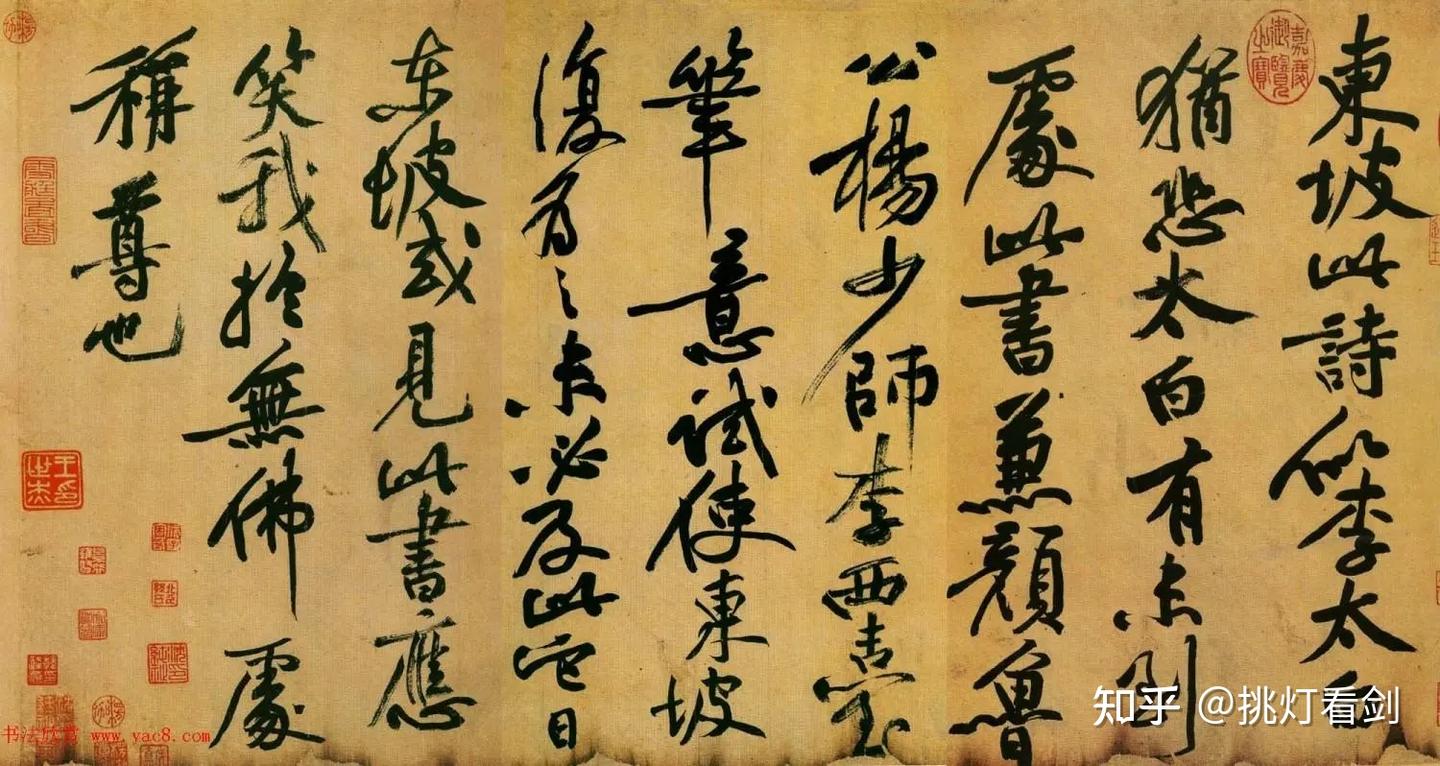 東坡此詩似李太白
猶恐太白有未到
處此書兼顏魯
公楊少師李西臺
筆意試使東坡
復為之未必及此它日
東坡或見此書應
笑我於無佛處
稱尊也
嘉慶御覽之寶
知乎 @挑灯看剑
书法欣赏 www.yac8.com